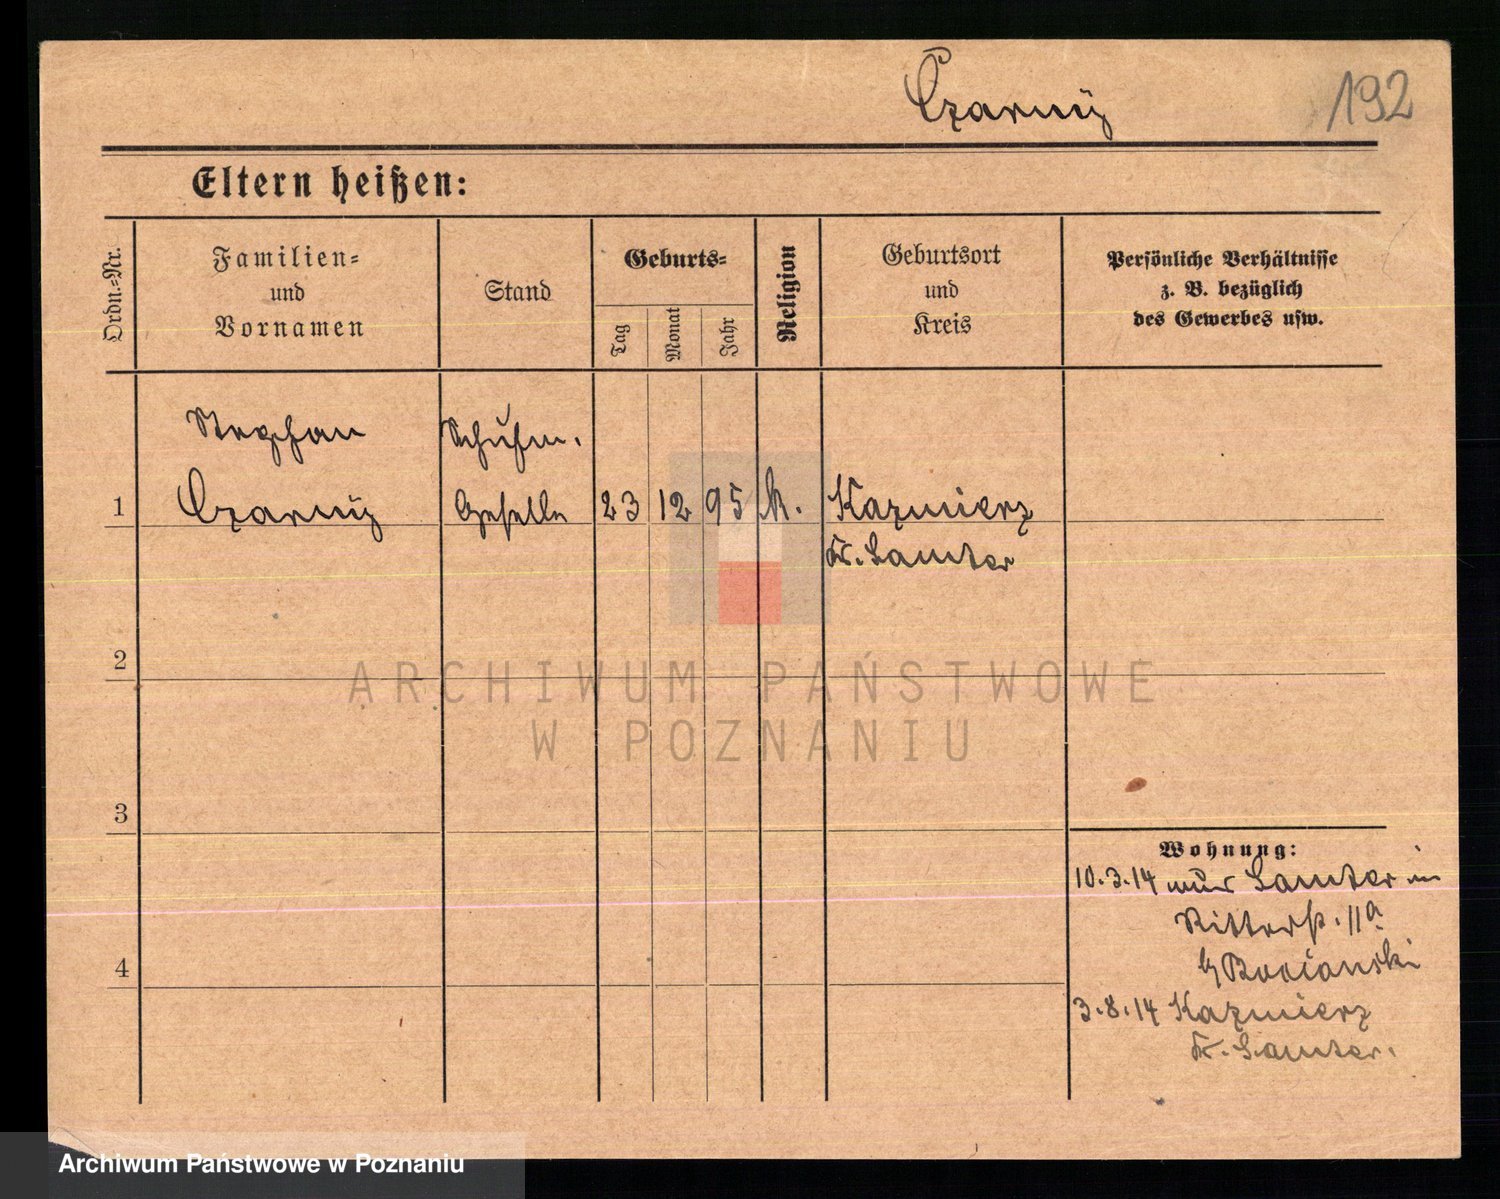 Czarny
192
Eltern heißen:
Ordn.-Nr.
Familien-
und
Vornamen
Stand
Geburts-
Tag
Monat
Jahr
Religion
Geburtsort
und
Kreis
Persönliche Verhältnisse
z. B. bezüglich
des Gewerbes usw.
Stephan
Schuhm.
1
Czarny
Geselle
23
12
95
k.
Kazmierz
Kr. Samter
2
ARCHIWUM PAŃSTWOWE
W POZNANIU
3
Wohnung:
10.3.14 Samter
Ritterstr. 11a
b/ Bocianski
4
3.8.14 Kazmierz
Kr. Samter.
Archiwum Państwowe w Poznaniu